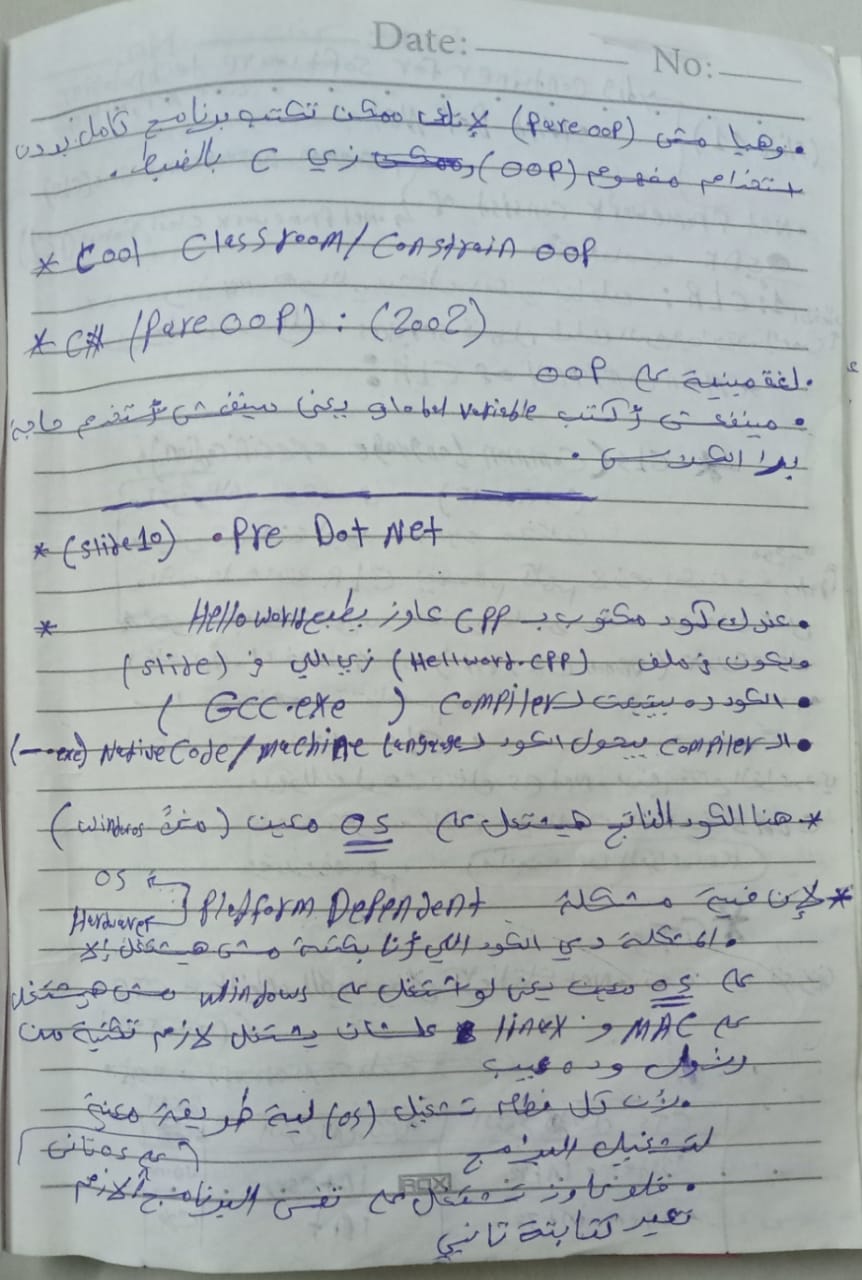 Date: No:
• وهيا مش (Pure OOP) لإنك ممكن تكتب برنامج كامل بدون
استخدام مفهوم (OOP) زي C بالضبط.
* Cool Classroom/Constrain OOP
* C# (Pure OOP) : (2002)
• لغة مبنية على OOP
• مينفعش أكتب Global variable يعني مينفعش أستخدم حاجة
برا الكلاس.
* (slide 10) • Pre Dot Net
* • عندك كود مكتوب بـ CPP عاوز يطبع Hello world
ويكون في ملف (Helloword.cpp) زي اللي في (slide)
• الكود ده بيتبعت لـ Compiler ( GCC.exe )
• الـ compiler بيحول الكود لـ Native Code/machine language (—.exe)
* هنا الكود الناتج هيشتغل على OS معين (مثلاً windows)
* لإن فيه مشكلة Platform Dependent OS
Hardware
• المشكلة دي الكود اللي أنا بكتبه مش هيشتغل إلا
على OS معين يعني لو اشتغل على windows مش هيشتغل
على MAC و linux علشان يشتغل لازم تكتبه من
وده عيب
• لأن كل نظام تشغيل (OS) ليه طريقة معينة
لتشغيل البرامج
على OS تاني
• فلو عاوز تشتغل على نفس البرنامج لازم
تعيد كتابته تاني
ROX